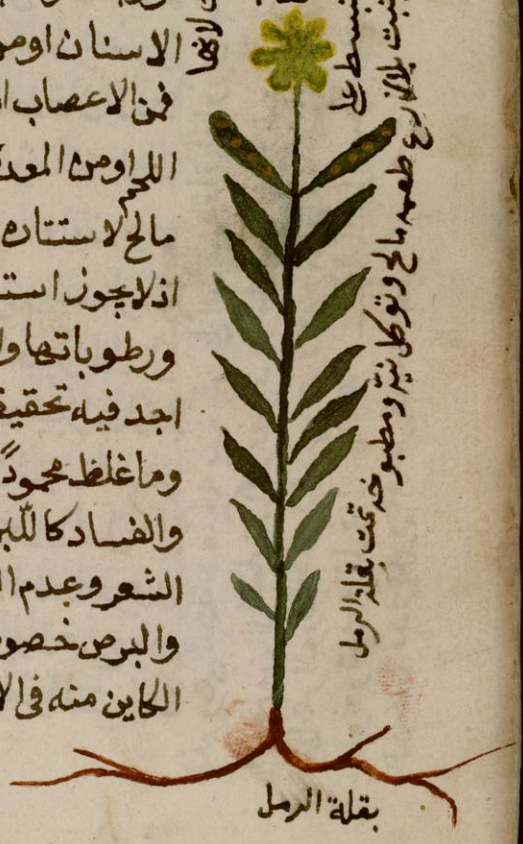 الاسنان اومن
فمن الاعصاب
اللحم اومن المعدة
مالح لاستتاره
اذ لا يجوز است
ورطوباتها وا
اجد فيه تحقيق
وما غلظ محمودًا
والفساد كاللبن
الشعر وعدم ا
والبرص خصو
الكاين منه في الا
ينبسط على
تنبت بلا زرع طعمه مالح وتوكل نيّة ومطبوخه تمت بقلة الرمل
بقلة الرمل